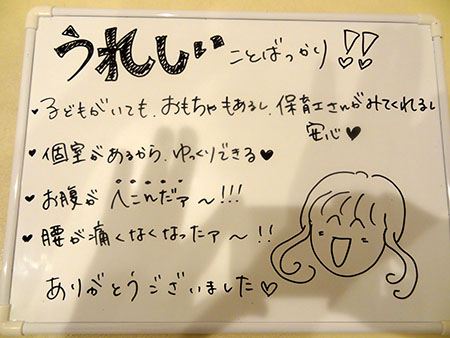 うれしいことばっかり!!
♥子どもがいても、おもちゃもあるし、保育士さんがみてくれるし
安心♥
♥個室があるから、ゆっくりできる♥
♥お腹がへこんだァ〜!!!
♥腰が痛くなくなったァ〜!!
ありがとうございました♡